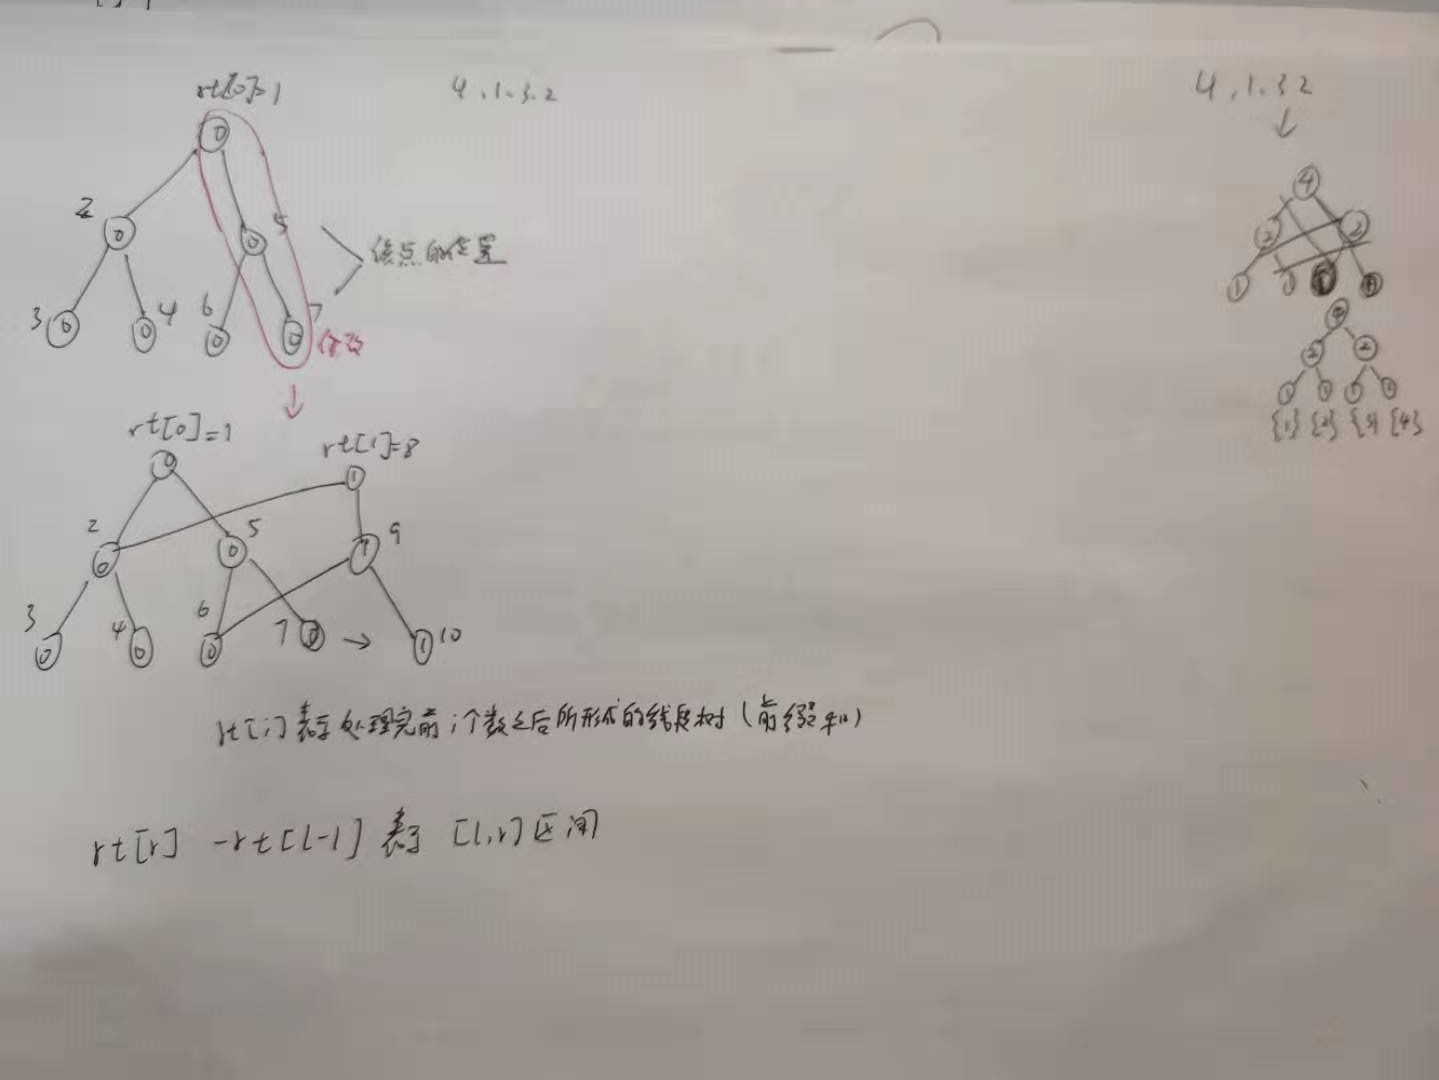 rt[0]=1
4,1.3.2
4,1.32
0
2
0
5
0
的位置
3
0
4
0
6
0
7
0
修改
4
2
2
1
4
2
2
1
1
1
1
{1} {2} {3} {4}
rt[0]=1
rt[1]=8
0
1
2
0
5
0
9
1
3
0
4
0
6
0
7
0
1
10
rt[i]表示处理完前i个数之后所形成的线段树(前缀和)
rt[r] -rt[l-1] 表示 [l,r]区间